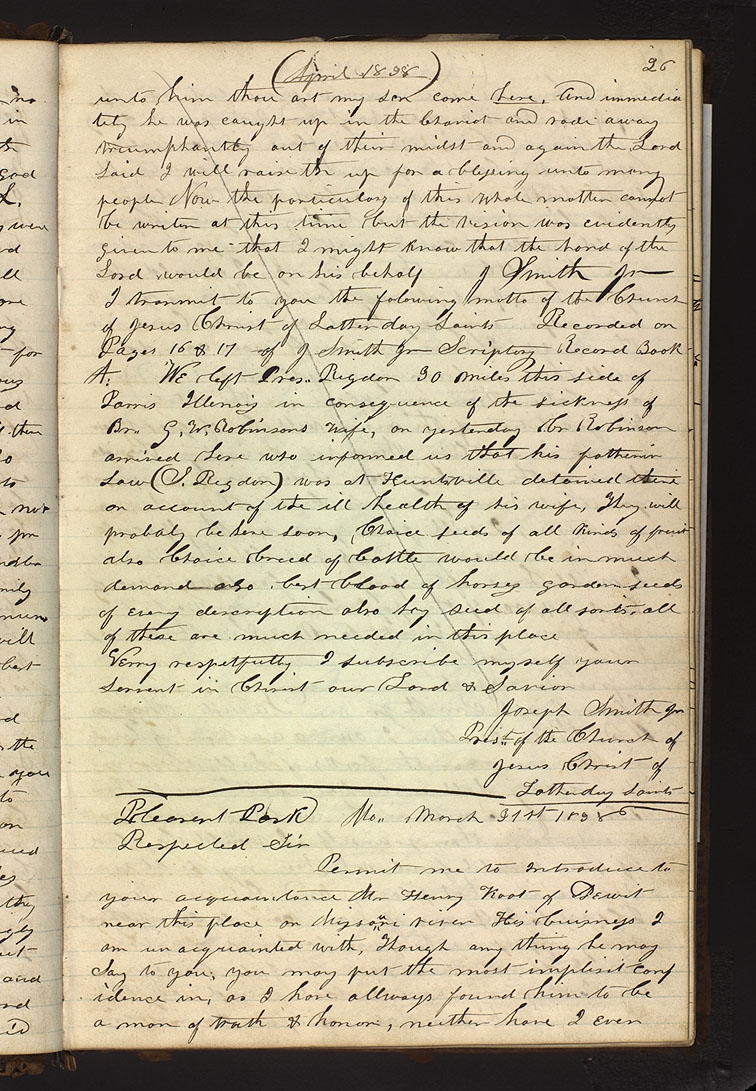 (April 1838)
26
unto him thou art my son come here, And immedia
tely he was caught up in the Chariot and rode away
triumphantly out of their midst and again the Lord
said I will raise the up for a blessing unto many
people Now the particulars of this whole matter cannot
be writen at this time but the vision was evidently
given to me that I might know that the hand of the
Lord would be on his behalf J Smith Jr
I transmit to you the folowing motto of the Church
of Jesus Christ of Latter day Saints Recorded on
Pages 16 & 17 of J Smith Jr Scriptory Record Book
A. We left Pres.. Rigdon 30 miles this side of
Parris Illinois in consequence of the sickness of
Br.. G. W. Robinsons wife, on yesterday Br Robinson
arrived here who informed us that his father in
Law (S. Rigdon) was at Huntsville detained there
on account of the ill health of his wife, They will
probaly be here soon, Choice seeds of all kinds of fruit
also Choice breed of Cattle would be in much
demand also best blood of horses garden seeds
of every description also hay seed of all sorts, all
of these are much needed in this place
Verry respetfully I subscribe myself your
servent in Christ our Lord & Savior
Joseph Smith Jr
Prest. of the Church of
Jesus Christ of
Latterday Saints
Pleasent Park Mo.. March 31st 1838
Respected Sir
Permit me to introduce to
your acquaintance Mr Henry Root of Dewit
near this place on Missouri river His buisness I
am unacquainted with, Though any thing he may
say to you, you may put the most implisit conf
idence in, as I have allways found him to be
a man of truth & honor, neither have I ever